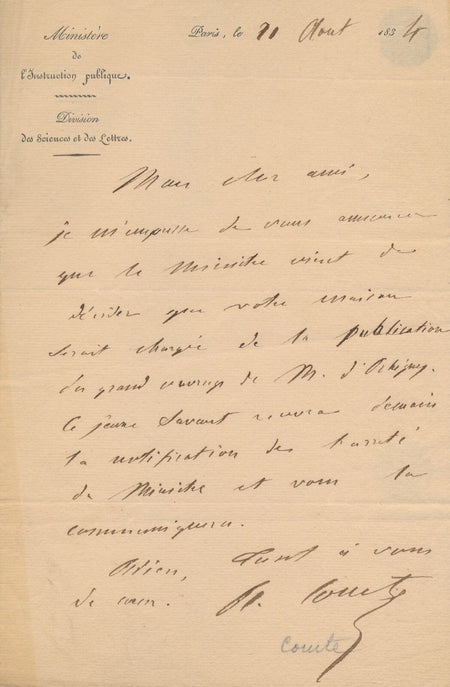 Ministère
de
l'Instruction publique.
Division
des Sciences et des Lettres.
Paris, le 21 Aout 1834
Mon cher ami,
je m'empresse de vous annoncer
que le Ministre vient de
décider que votre maison
serait chargée de la publication
du grand ouvrage de M. d'Orbigny.
Ce jeune savant recevra demain
la notification de l'arrêté
du Ministre et vous la
communiquera.
Adieu, tout à vous
de cœur. Comte
Comte